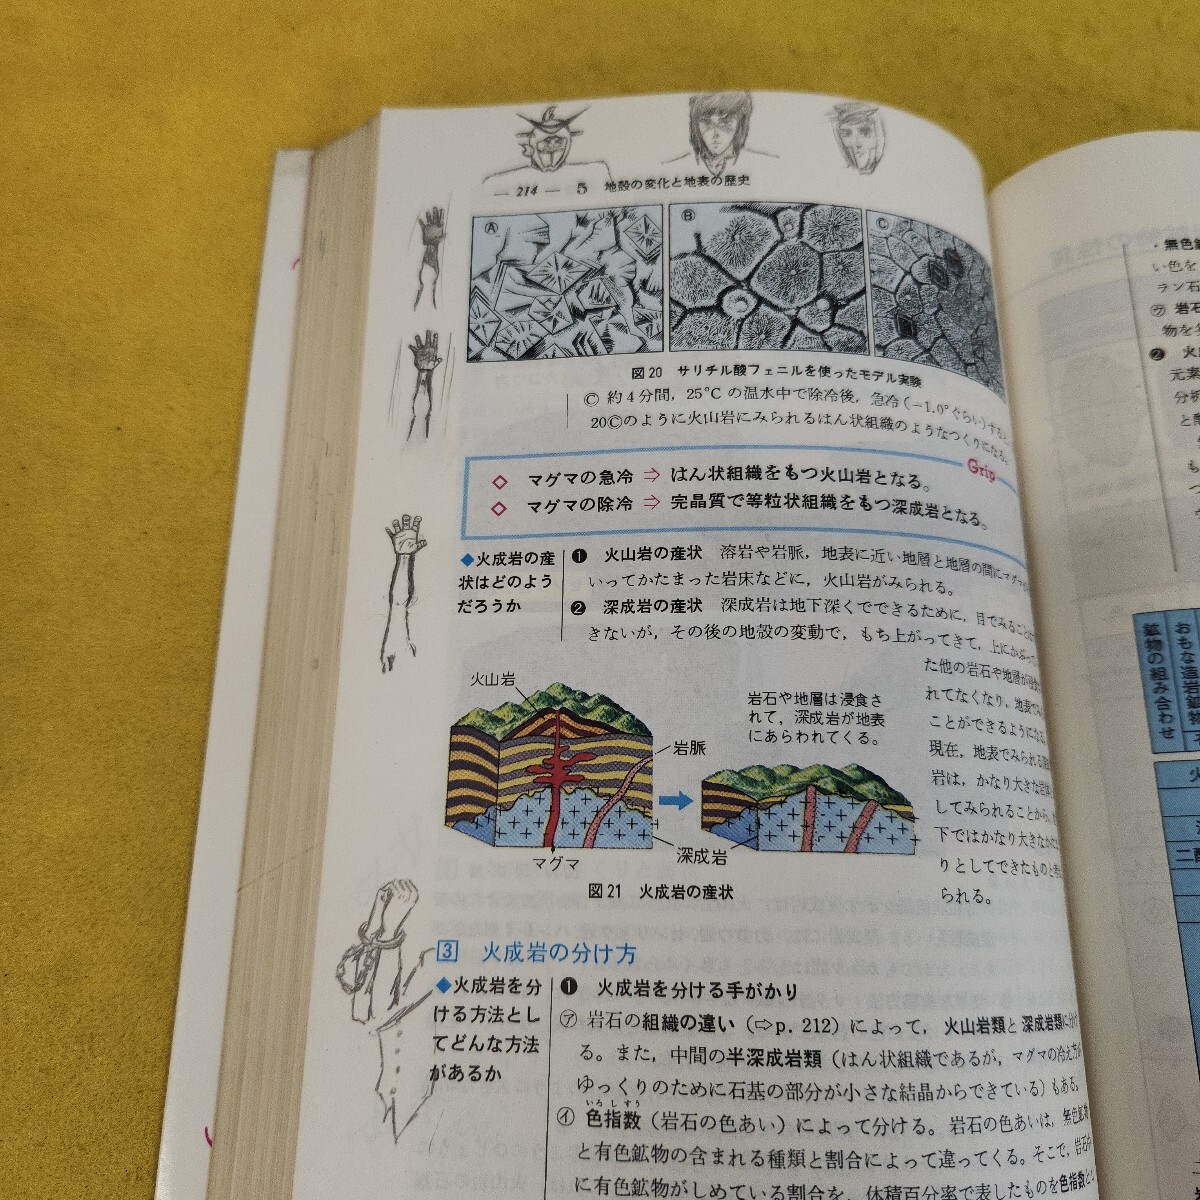 — 214 — 5 地殻の変化と地表の歴史
Ⓐ
Ⓑ
Ⓒ
図20 サリチル酸フェニルを使ったモデル実験
Ⓒ 約4分間，25°C の温水中で除冷後，急冷(−1.0°ぐらい)する
20Ⓒのように火山岩にみられるはん状組織のようなつくりになる。
Grip
◇ マグマの急冷 ⇒ はん状組織をもつ火山岩となる。
◇ マグマの除冷 ⇒ 完晶質で等粒状組織をもつ深成岩となる。
◆火成岩の産
状はどのよう
だろうか
❶ 火山岩の産状 溶岩や岩脈，地表に近い地層と地層の間にマグマが
いってかたまった岩床などに，火山岩がみられる。
❷ 深成岩の産状 深成岩は地下深くでできるために，目でみることは
きないが，その後の地殻の変動で，もち上がってきて，上にかぶって
た他の岩石や地層が
れてなくなり，地表で
ことができるようになる。
現在，地表でみられる
岩は，かなり大きな岩体
してみられることから，
下ではかなり大きな
りとしてできたものと考
られる。
火山岩
岩脈
マグマ
深成岩
岩石や地層は浸食さ
れて，深成岩が地表
にあらわれてくる。
図21 火成岩の産状
3 火成岩の分け方
◆火成岩を分
ける方法とし
てどんな方法
があるか
❶ 火成岩を分ける手がかり
㋐ 岩石の組織の違い（⇨p. 212）によって，火山岩類と深成岩類に分け
る。また，中間の半深成岩類（はん状組織であるが，マグマの冷え方が
ゆっくりのために石基の部分が小さな結晶からできている）もある。
いろしすう
㋑ 色指数（岩石の色あい）によって分ける。岩石の色あいは，無色鉱物
と有色鉱物の含まれる種類と割合によって違ってくる。そこで，岩石
に有色鉱物がしめている割合を，体積百分率で表したものを色指数と
・無色鉱
い色を
ラン石
㋒ 岩石
物を
❷ 火
元素
分析
と
も
つ
鉱物の組み合わせ
おもな造岩鉱物
火
二酸